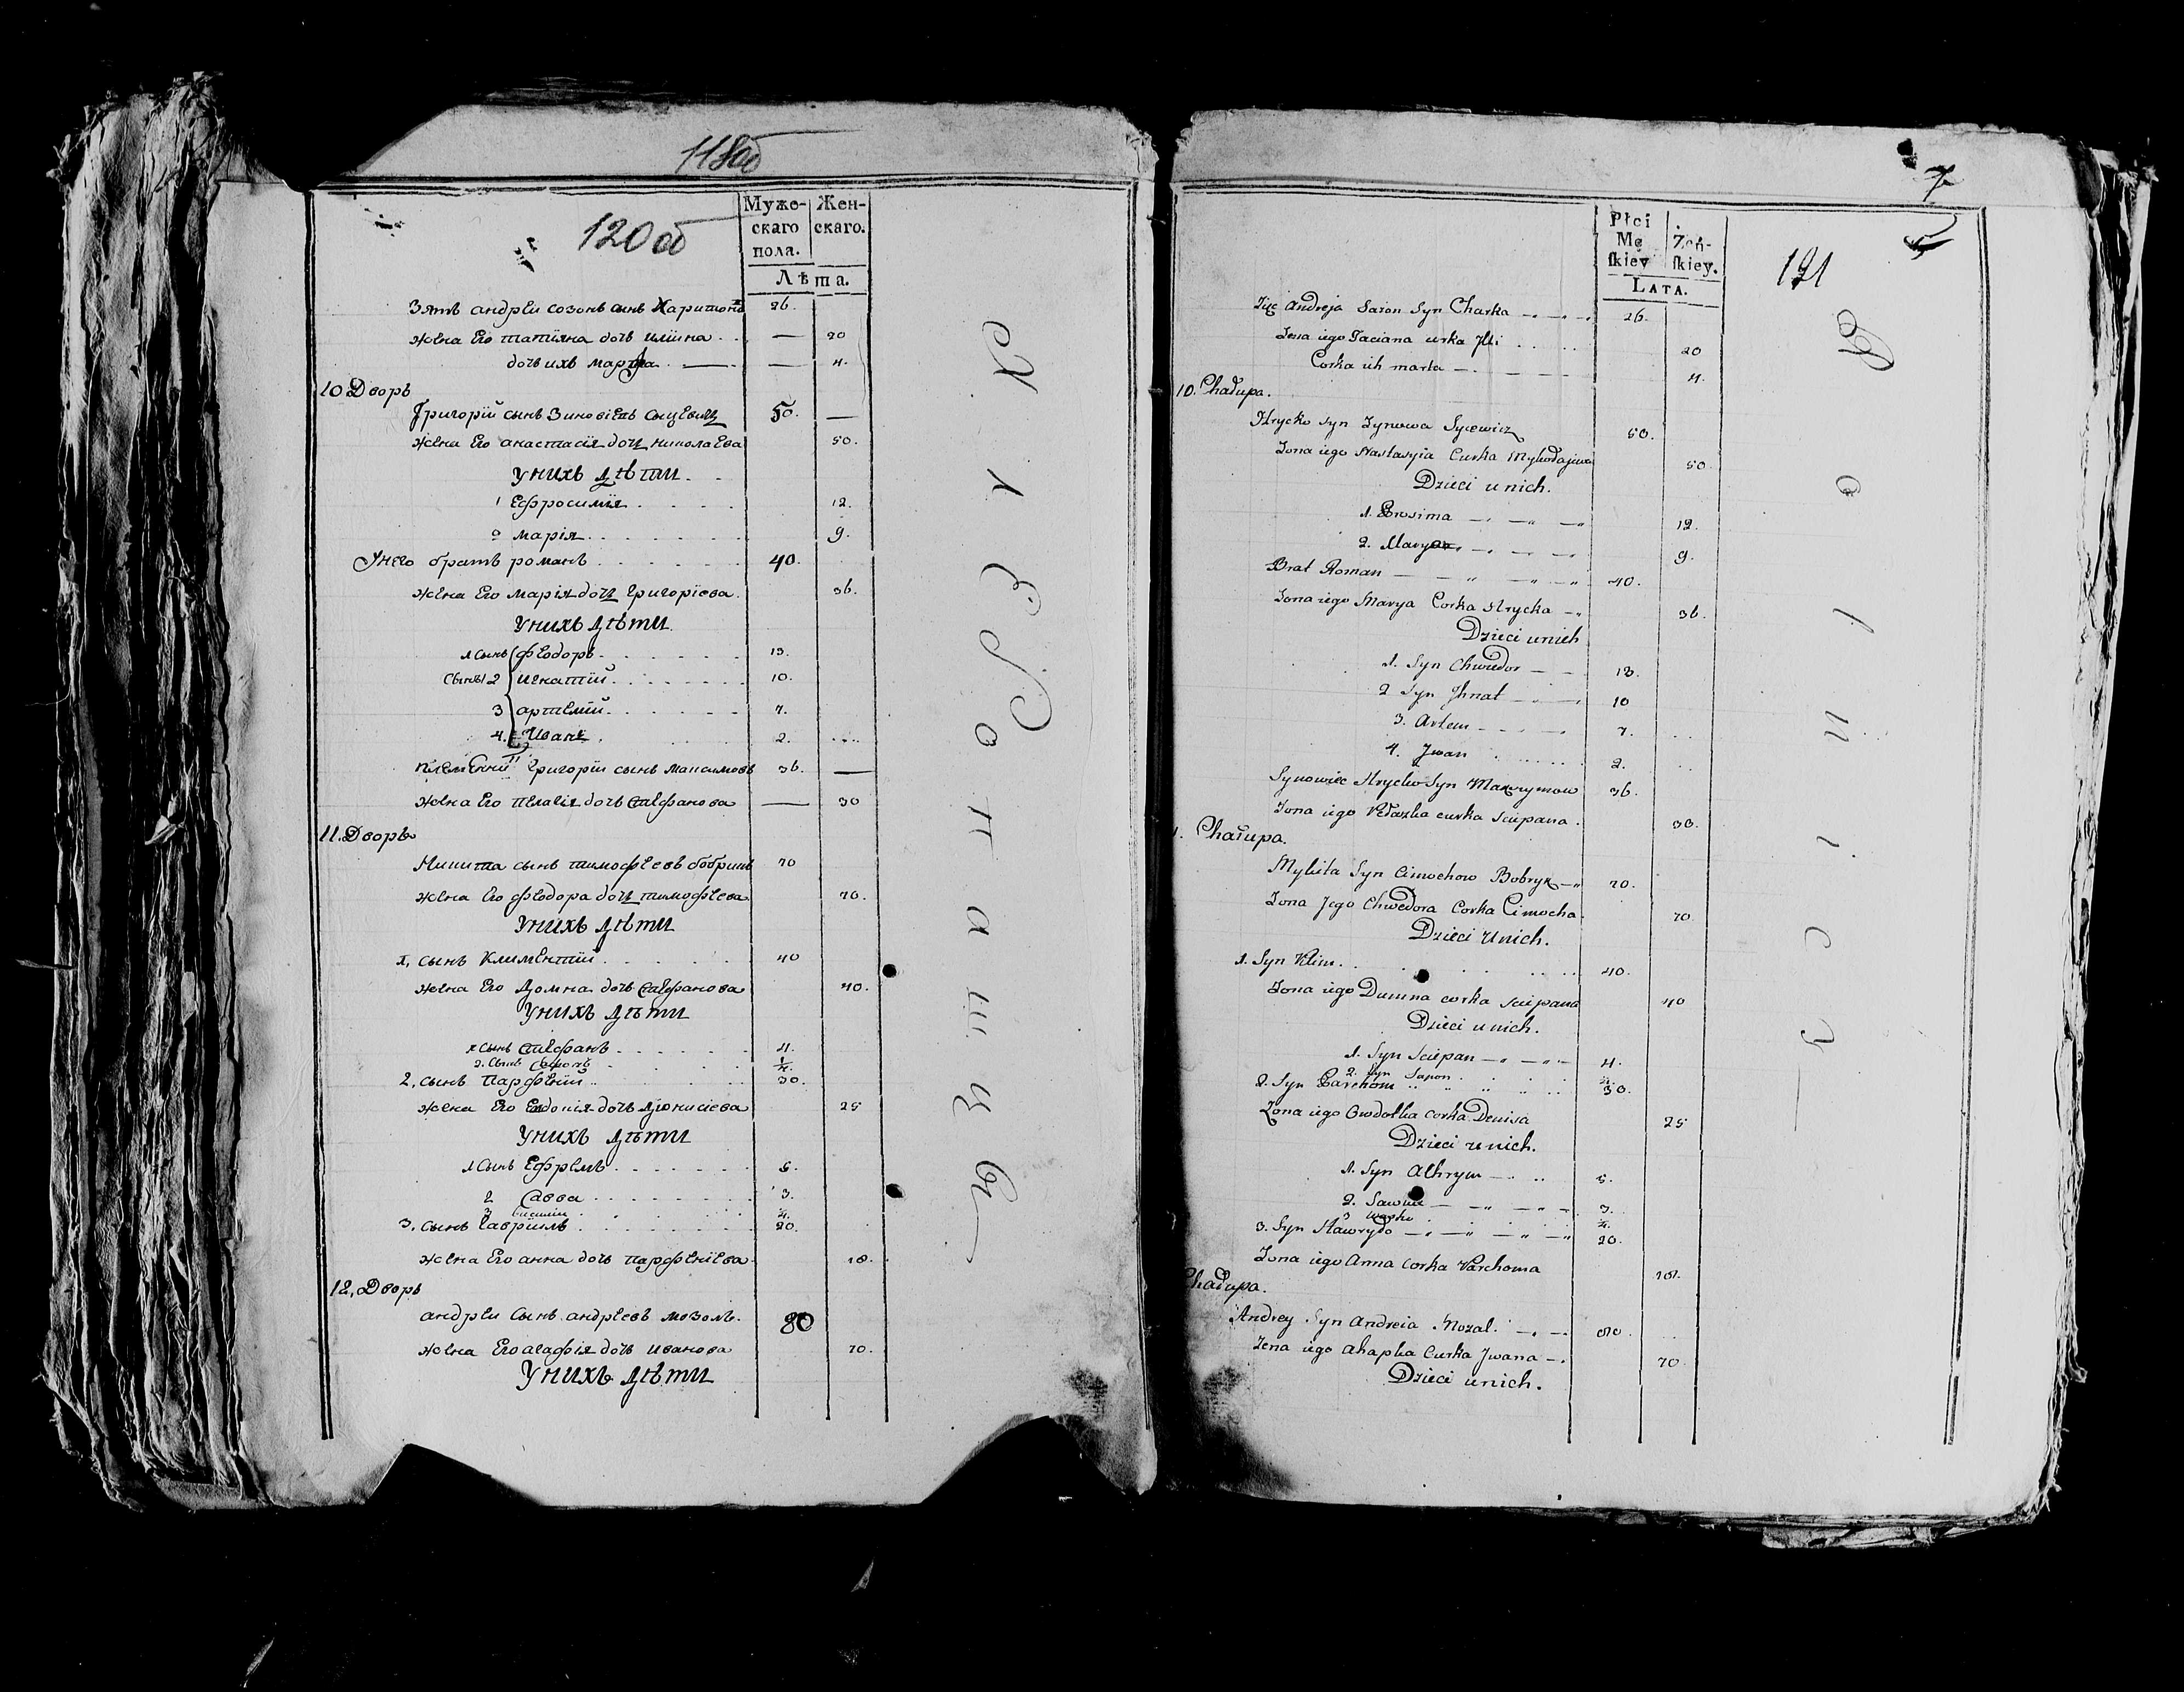 118об
120об
Муже-
скаго
пола.
Жен-
скаго.
Лѣта.
Зять андрѣи созонъ сынъ Харитонъ 26.
жена Его татіяна дочь иліина — 20
дочь ихъ марфа — 4.
10 Дворъ
Григорій сынъ Зиновіевъ Сыцевичъ 50. —
жена Его анастасія дочь николаева 50.
У нихъ дѣти
1 Ефросимія 12.
2 марія 9.
У него братъ романъ 40.
жена Его марія дочь григоріева 36.
У нихъ дѣти
1 сынъ феодоръ 13.
сыны 2 игнатій 10.
3 артемій 7.
4. Иванъ 2.
Племенни григоріи сынъ максимовъ 36. —
жена Его пелагія дочь стефанова — 30
11. Дворъ
Никита сынъ тимофеевъ бобрикъ 70
жена Его феодора дочь тимофеева 70.
У нихъ дѣти
1, сынъ Климентій 40
жена Его домна дочь стефанова 40.
У нихъ дѣти
1 сынъ стефанъ 4.
2. сынъ ¼.
2, сынъ Парфеній 30.
жена Его Евдокія дочь діонисіева 25
У нихъ дѣти
1 сынъ Ефремъ 5.
2 Савва 3.
3 василіи ¼.
3. сынъ гавріилъ 20.
жена Его анна дочь парфеніева 18.
12, Дворъ
андрѣи сынъ андрѣевъ мозоль 80
жена Его агафія дочь иванова 70.
У нихъ дѣти
7
121
Płci
Mę
skiey
Żeń-
skiey.
LATA.
Zięć Andreja Sazon Syn Charka 26.
Żona iego Taciana curka Jlli 20
Corka ich marta 4.
10. Chałupa.
Hrycko Syn Zynowa Sycewicz 50.
Żona iego Nastasyia Curka Mykołajewa 50.
Dzieci u nich.
1. Prosima 12.
2. Marya 9.
Brat Roman 40.
Żona iego Marya Corka Hrycka 36.
Dzieci u nich
1. Syn Chwedor 13.
2 Syn Jhnat 10
3. Artem 7.
4. Jwan 2.
Synowiec Hrycko Syn Maxymow 36.
Żona iego Pełaszka curka Sciepana 30.
Chałupa.
Mykita Syn Cimochow Bobryk 70.
Żona Jego Chwedora Corka Cimocha 70
Dzieci u nich.
1. Syn Klim 40.
Żona iego Dumna corka Sciepana 40
Dzieci u nich.
1. Syn Sciepan 4.
2. Syn Sapon ¼
2. Syn Parchom 30.
Żona iego Owdotka corka Denisa 25
Dzieci u nich.
1. Syn Achrym 5.
2. Sawka 3.
3 Wasko ¼.
3. Syn Hawryło 20.
Żona iego Anna corka Parchoma 18.
Chałupa.
Andrey Syn Andreia Mozal 80.
Żona iego Ahapka Curka Jwana 70
Dzieci u nich.